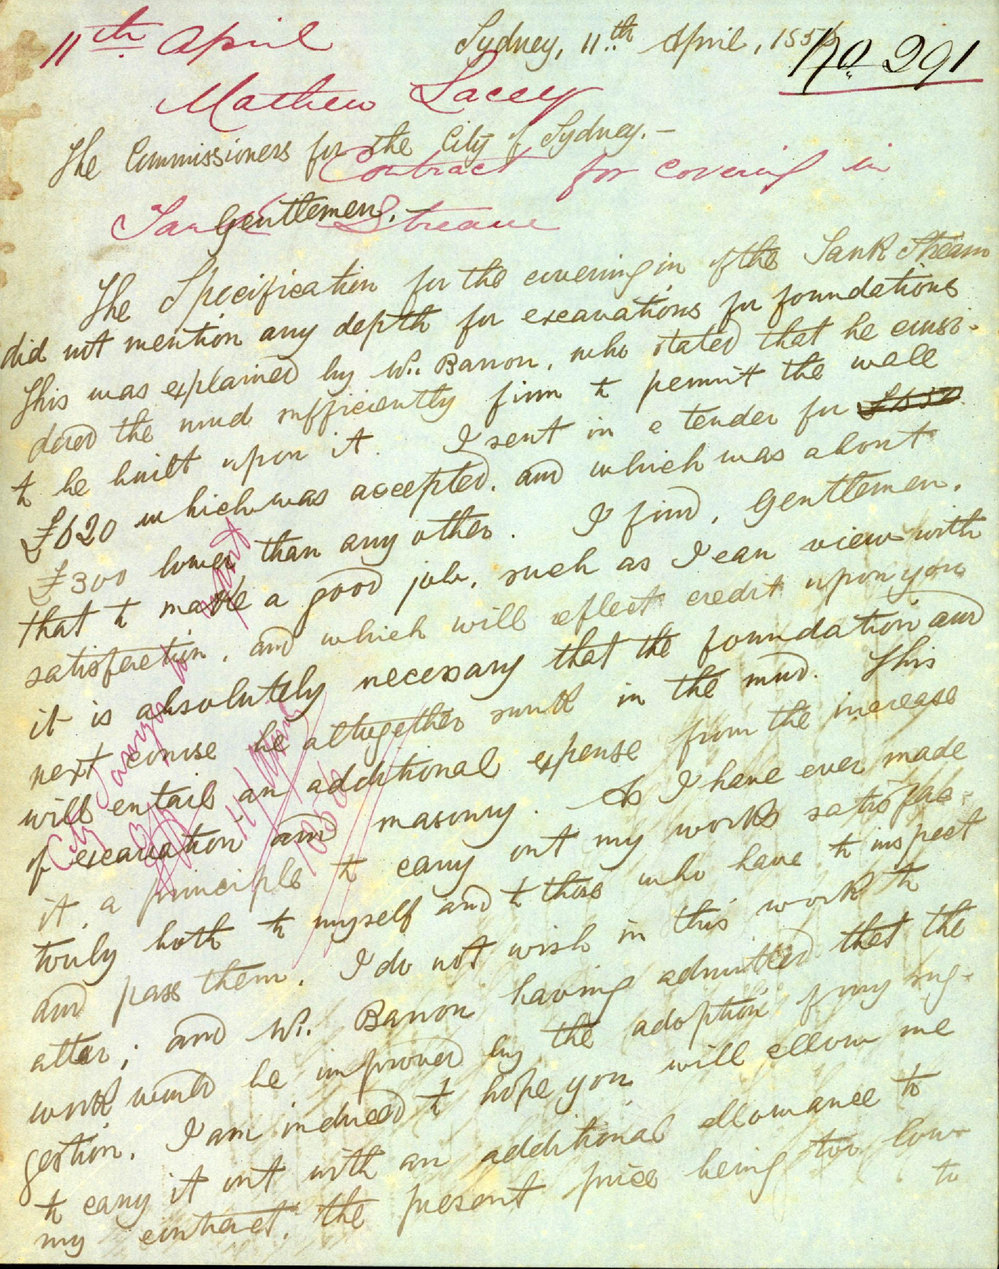 11th April
Sydney, 11th April, 1856
No. 291
Mathew Lacey
The Commissioners for the City of Sydney.-
Contract for covering in
Tank Stream
Gentlemen,
The Specification for the covering in of the Tank Stream
did not mention any depth for excavations for foundations
This was explained by W. Barron, who stated that he consi-
dered the mud sufficiently firm to permit the wall
to be built upon it. I sent in a tender for £650
£620 which was accepted, and which was about
£300 lower than any other. I find, Gentlemen,
that to make a good job, such as I can view with
satisfaction, and which will reflect credit upon you
it is absolutely necessary that the foundation and
next course be altogether sunk in the mud. This
will entail an additional expense from the increase
of excavation and masonry. As I have ever made
it a principle to carry out my works satisfac-
torily both to myself and to those who have to inspect
and pass them, I do not wish in this work to
alter; and W. Barron having admitted that the
work would be improved by the adoption of my sug-
gestion. I am induced to hope you will allow me
to carry it out with an additional allowance to
my contract, the present price being too low
to
City Surveyor to report